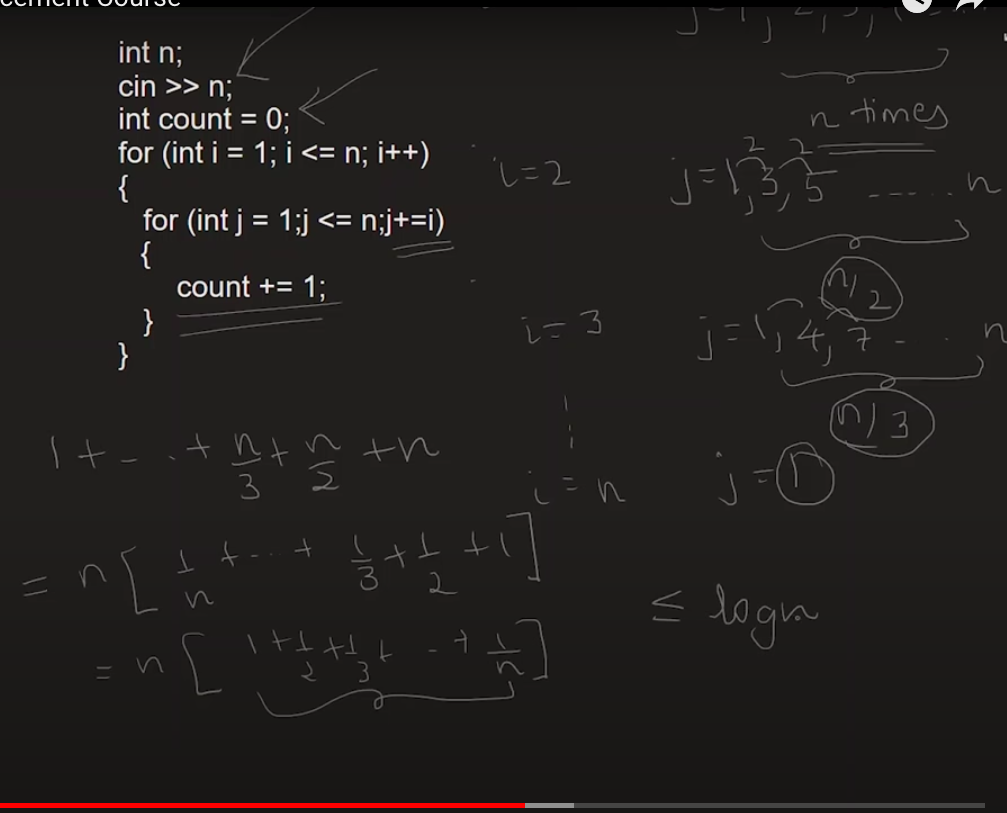 cement Course
int n;
cin >> n;
int count = 0;
for (int i = 1; i <= n; i++)
{
for (int j = 1;j <= n;j+=i)
{
count += 1;
}
}
n times
i=2 j=1,3,5 ...... n
2 2
n/2
i=3 j=1,4,7 - . . n
n/3
i=n j=1
1+-..+n/3+n/2+n
= n[1/n+-..+1/3+1/2+1]
≤ logn
= n[1+1/2+1/3+-+1/n]